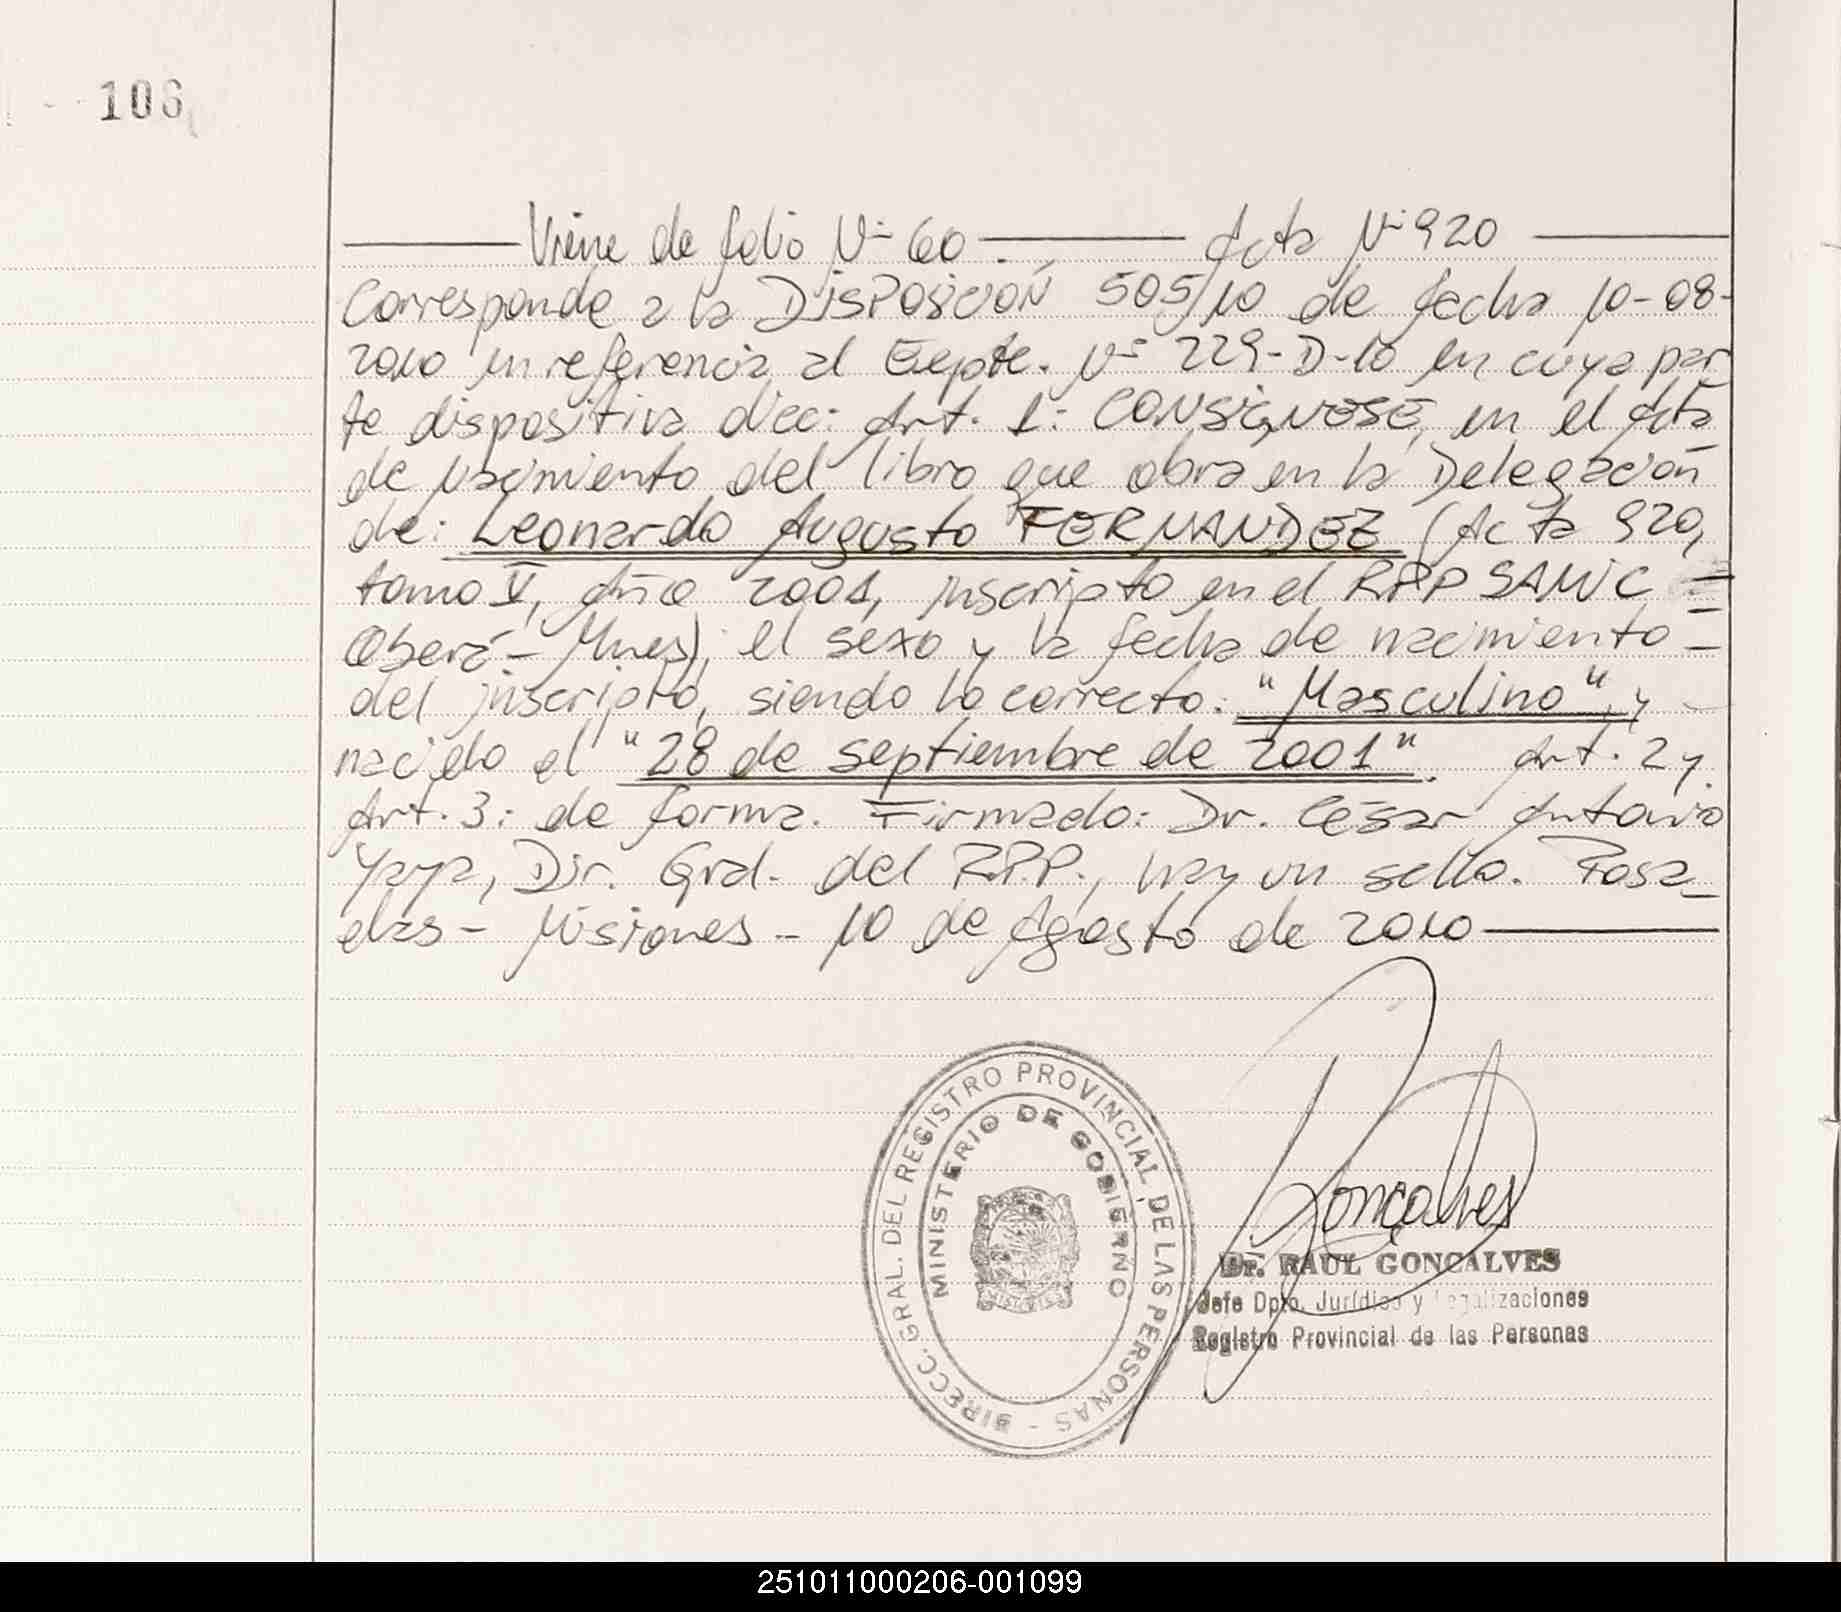 106
Viene de folio Nº 60 . Acta Nº 920
Corresponde a la DISPOSICIÓN 505/10 de fecha 10-08-
2010 en referencia al Expte. Nº 229-D-10 en cuya par
te dispositiva dice: Art. 1: CONSIGNESE, en el Acta
de Nacimiento del libro que obra en la Delegación
de: Leonardo Augusto FERNANDEZ (Acta 920,
tomo V, Año 2001, inscripto en el RPP SAMIC =
Oberá - Mnes), el sexo y la fecha de nacimiento -
del inscripto, siendo lo correcto: "Masculino", y
nacido el "28 de septiembre de 2001". Art. 2 y
Art. 3: de forma. Firmado: Dr. César Antonio
Yaya, Dir. Gral. del R.P.P., hay un sello. Posa_
das - Misiones - 10 de Agosto de 2010
DIRECC. GRAL. DEL REGISTRO PROVINCIAL DE LAS PERSONAS -
MINISTERIO DE GOBIERNO
MISIONES
Gonçalves
Dr. RAUL GONCALVES
Jefe Dpto. Jurídico y Legalizaciones
Registro Provincial de las Personas
251011000206-001099